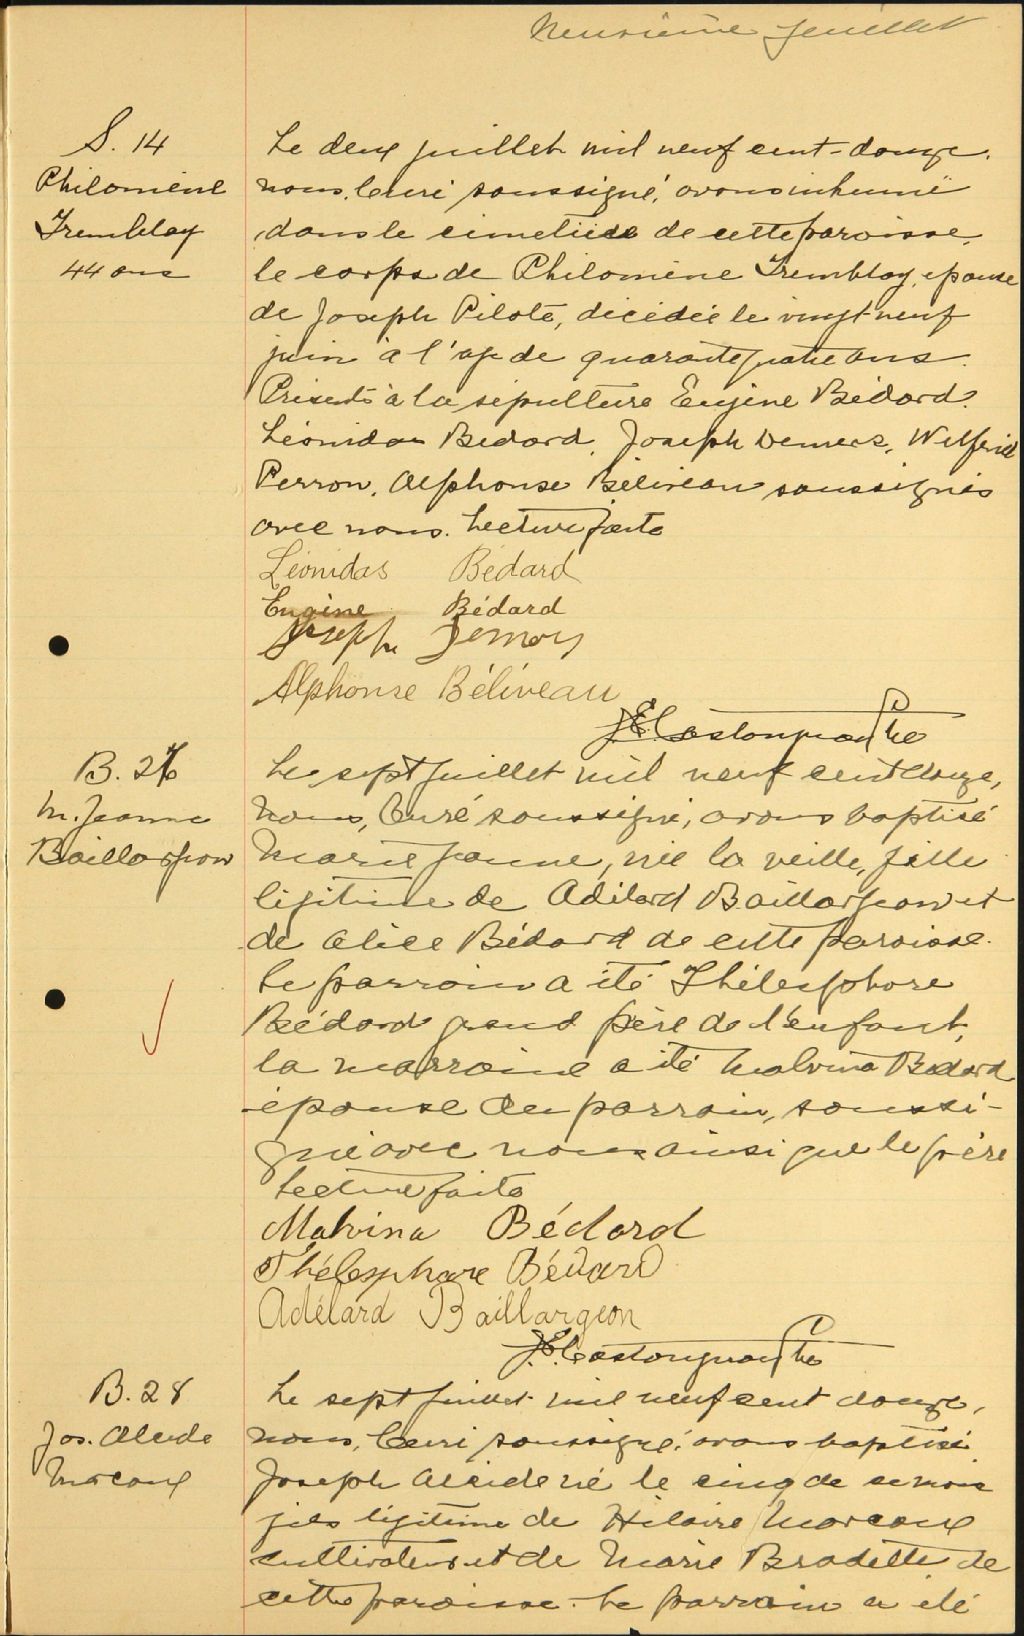 Neuvième feuillet
S. 14
Philomène
Tremblay
44 ans
Le deux juillet mil neuf cent-douze.
nous, Curé soussigné, avons inhumé
dans le cimetière de cette paroisse,
le corps de Philomène Tremblay, épouse
de Joseph Pilote, décédée le vingt neuf
juin à l'age de quarante quatre ans.
Présents à la sépulture Eugène Bédard.
Léonidas Bedard, Joseph Demers, Wilfrid
Perron, Alphonse Béliveau soussignés
avec nous. Lecture faite
Léonidas Bédard
Eugène Bédard
Joseph Demers
Alphonse Béliveau
J.E. Castonguay Ptre
B. 27
M. Jeanne
Baillargeon
Le sept juillet mil neuf cent douze,
Nous, Curé soussigné, avons baptisé
Marie Jeanne, née la veille, fille
légitime de Adélard Baillargeon et
de Alice Bédard de cette paroisse.
Le parrain a été Thélesphore
Bédard grand père de l'enfant,
la marraine a été Malvina Bédard
épouse du parrain, soussi-
gné avec nous ainsi que le père
Lecture faite
Malvina Bédard
Thélesphore Bédard
Adélard Baillargeon
J.E. Castonguay Ptre
B. 28
Jos. Alcide
Marcoux
Le sept juillet mil neuf cent douze,
nous, Curé soussigné, avons baptisé
Joseph Alcide né le cinq de ce mois
fils légitime de Hilaire Marcoux
cultivateur et de Marie Bradette de
cette paroisse. Le parrain a été